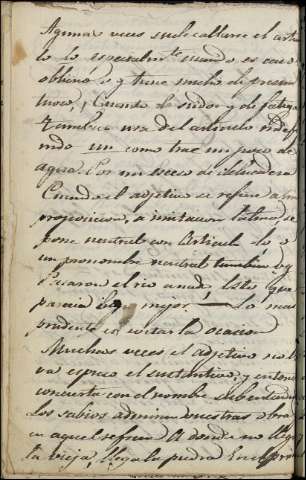 Algunas veces suele callarse el artícu
lo lo especialm.te cuando es caso
oblicuo o y tiene mucho de presun
tuoso, ¡Cuanto de sudor y de fatiga
Tambien usa del articulo
un como trae un poco de
agua. Por mi
Cuando el adjetivo se refiere a una
proposicion, a imitacion latina, se
pone neutral con articulo lo o
un pronombre neutral tambien
Pasaron el rio a nado, Esto que
parecia mejor. — Lo mas
prudente es evitar la ocasion
Muchas veces el adjetivo no lle
va espreso el sustantivo, y entonces
concierta con el nombre subentendido
Los sabios admiran vuestras obras
en aquel refran A donde no llega
la vieja, llega la piedra